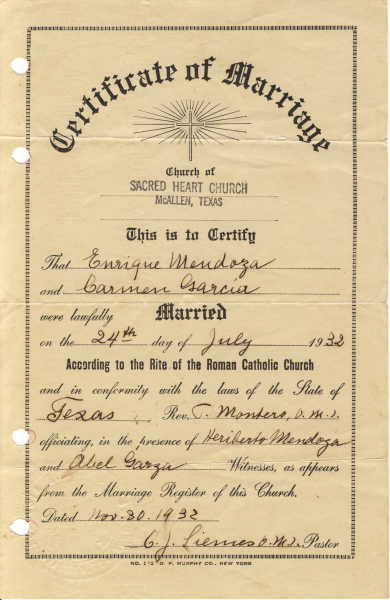 Certificate of Marriage
Church of
SACRED HEART CHURCH
McALLEN, TEXAS
This is to Certify
That Enrique Mendoza
and Carmen Garcia
were lawfully Married
on the 24th day of July 1932
According to the Rite of the Roman Catholic Church
and in conformity with the laws of the State of
Texas Rev. T. Montero, O.M.I.
officiating, in the presence of Heriberto Mendoza
and Abel Garza Witnesses, as appears
from the Marriage Register of this Church.
Dated Nov. 30. 1932
C. J. Siemes O.M.I., Pastor
NO. 112 D. P. MURPHY CO., NEW YORK